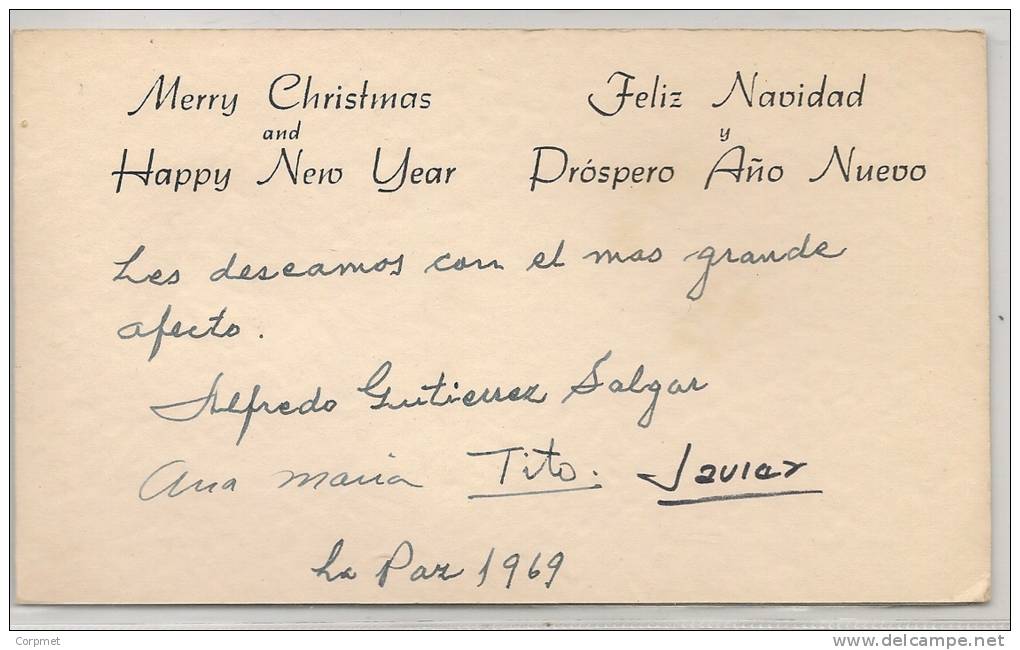 Merry Christmas
and
Happy New Year
Feliz Navidad
y
Próspero Año Nuevo
Les deseamos con el mas grande
afecto.
Alfredo Gutierrez Salgar
Ana Maria Tito. Javier
La Paz 1969
Corpmet
www.delcampe.net